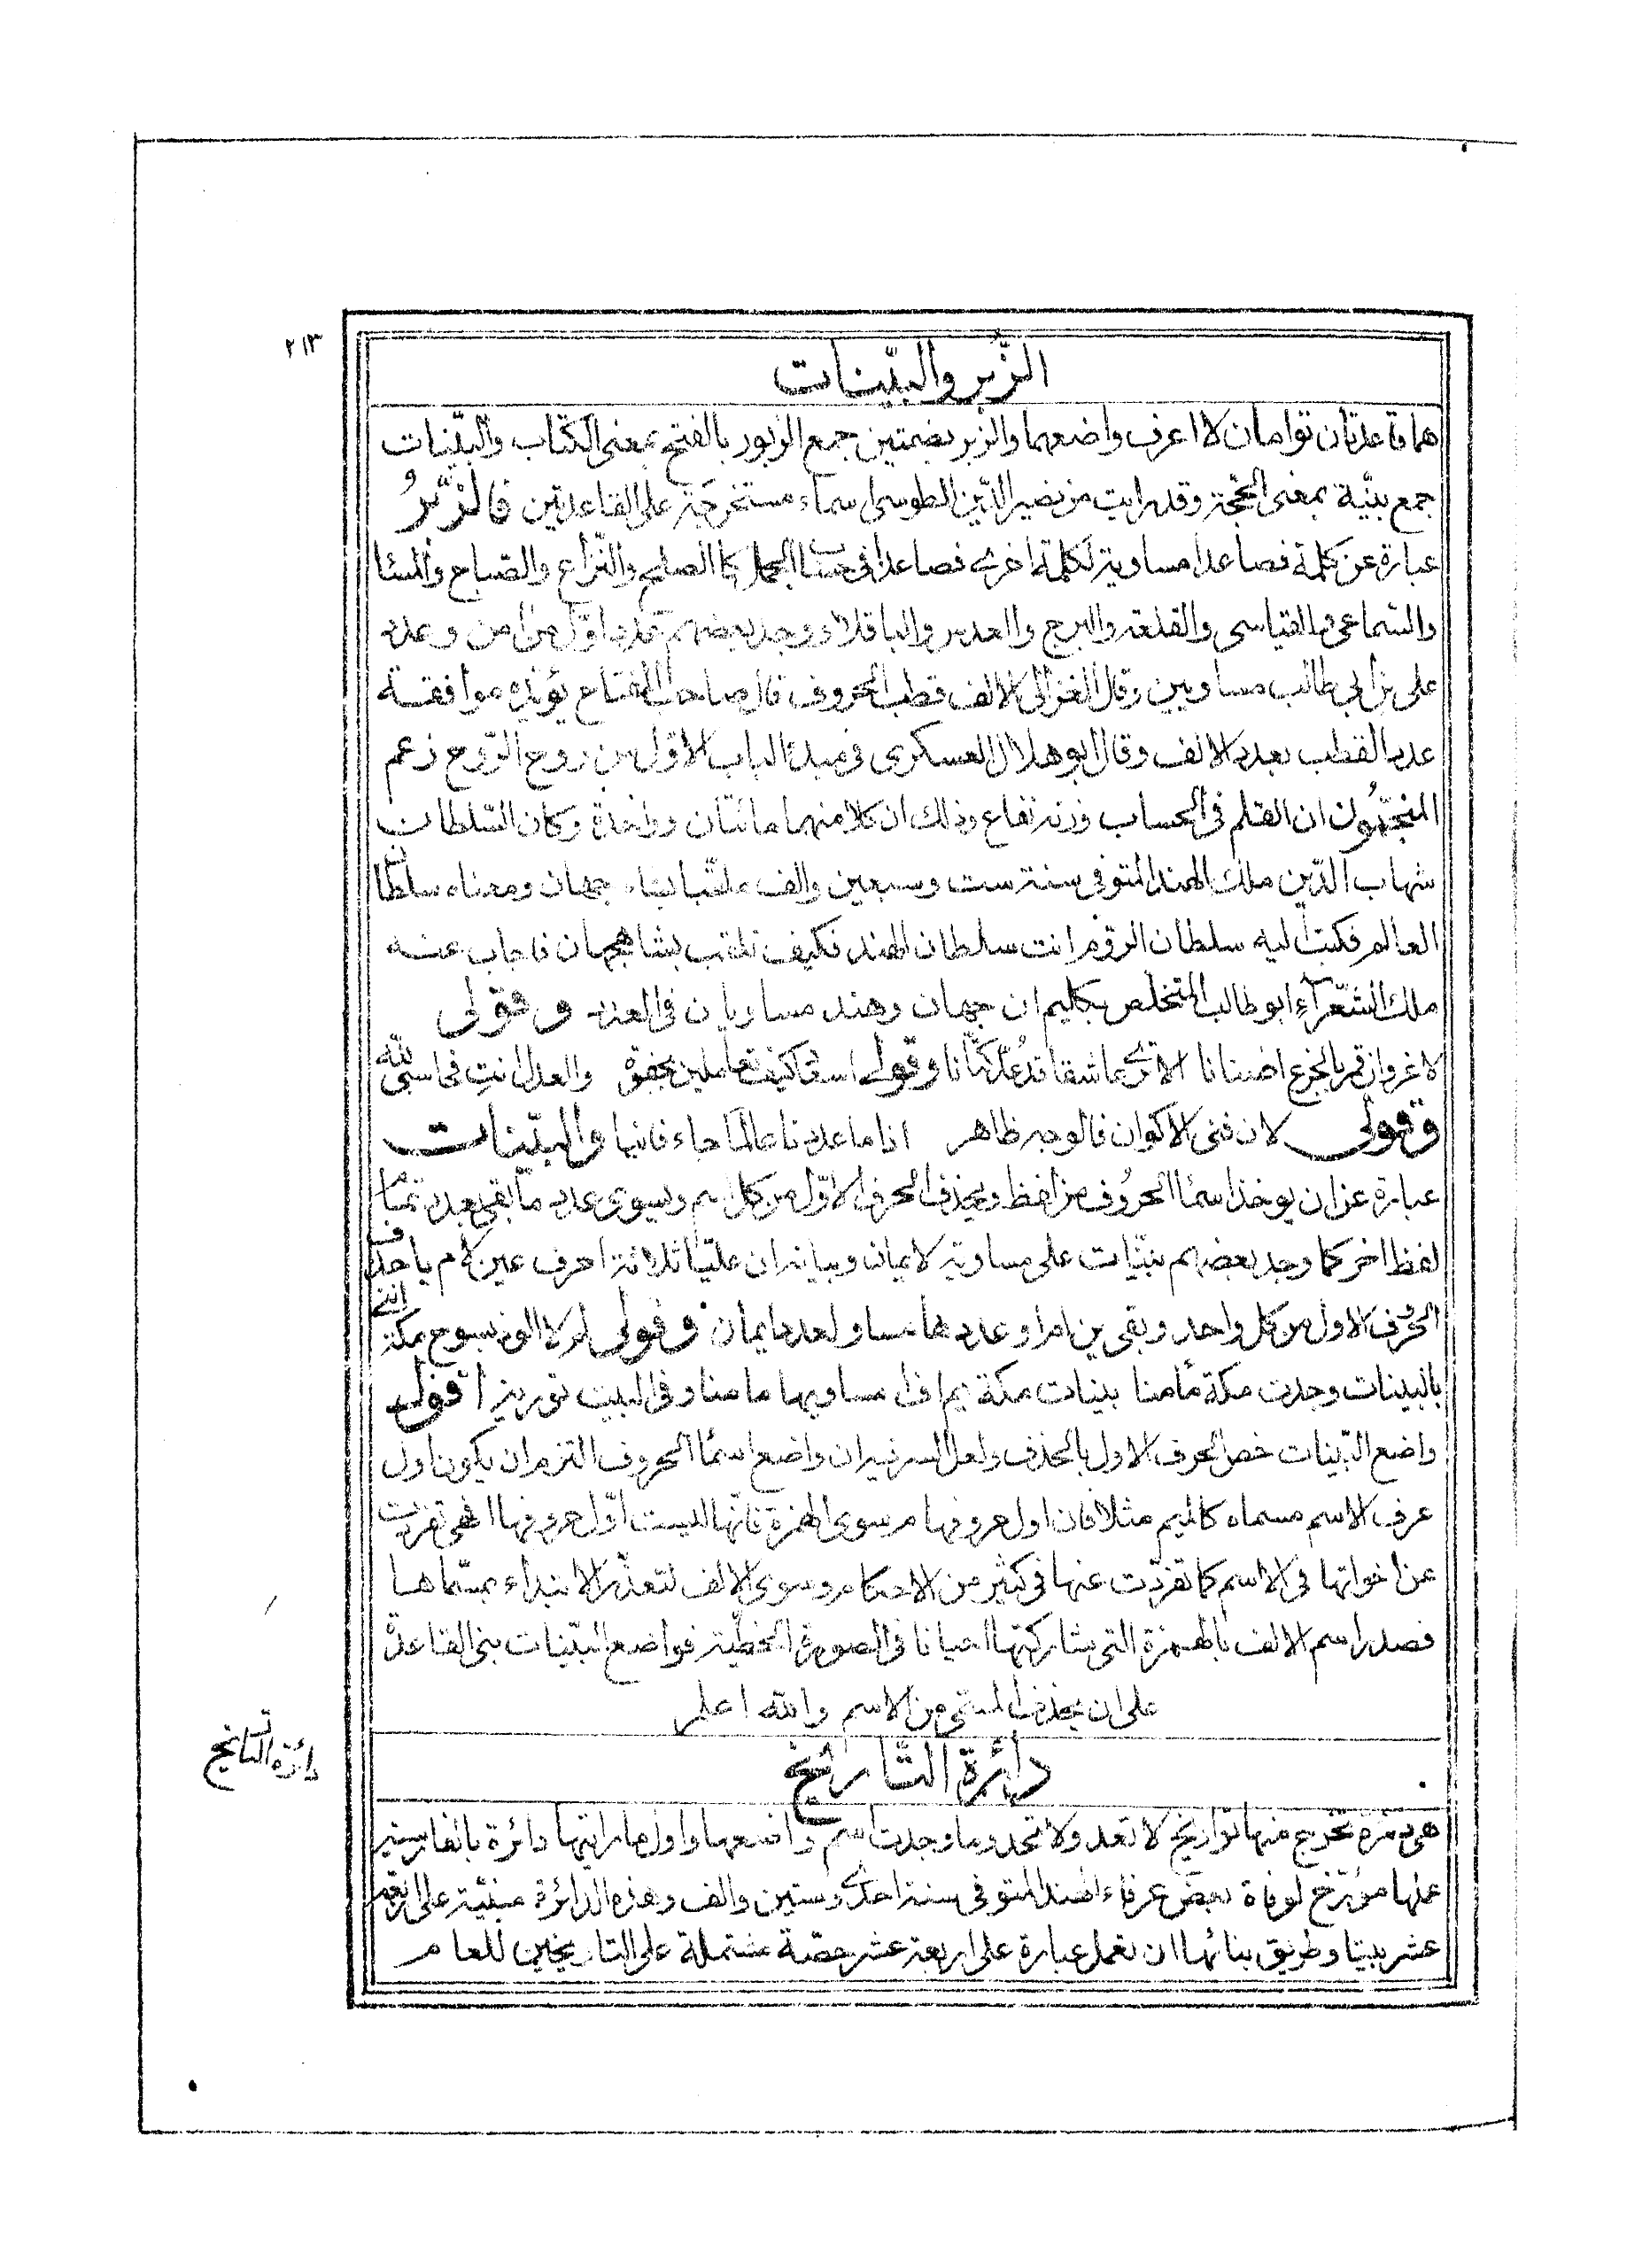 ٢١٣
الزُّبر والبيّنات
هما قاعدتان توامان لا اعرف واضعهما والزبر بضمتين جمع الزبور بالفتح بمعنى الكتاب والبيّنات
جمع بيّنة بمعنى الحجّة وقد رايت من نصير الدّين الطوسى اسماء مستخرجة على القاعدتين فالزُّبرُ
عبارة عن كلمة فصاعدا مساوية لكلمة اخرى فصاعدا فى حساب الجمل كالصليح والنّزاع والصّباح والمسا
والسّماعى والقياسى والقلعة والبرج والعدس والباقلاء ووجد بعضهم عدد اوّل من امن وعدد
على بن ابى طالب مساويين وقال الغزالى الالف قطب الحروف قال صاحب المفتاح يؤيده موافقة
عدد القطب بعدد الالف وقال ابو هلال العسكرى فى مبدء الباب الاوّل من روح الرّوح زعم
المنجّمون ان القلم فى الحساب وزنه نفاع وذلك ان كلا منهما مائتان وواحدة وكان السّلطان
شهاب الدّين ملك الهند المتوفى سنة ست وسبعين والف ملقّبا بشاه جهان ومعناه سلطان
العالم فكتب اليه سلطان الروم انت سلطان الهند فكيف تلقب بشاهجهان فاجاب عنه
ملك الشّعرآء ابو طالب المتخلص بكليم ان جهان وهند مساويان فى العدد وقولى
لا غرو ان قمر بالجزع اضنانا الا ترى عاشقا قد عدّ كتّانا وقولى اسقى كيف تعاملين بجفوة والعدل انت فحاسبى لله
وقولى لان فنى الاكوان فالوجه ظاهر اذا ما عددنا عالما جاء فانيا والبيّنات
عبارة عن ان يوخذ اسما الحروف من لفظ ويحذف الحرف الاوّل من كل اسم ويسوى عدد ما بقى بعدد تمام
لفظ اخر كما وجد بعضهم بيّنات على مساوية لايمان وبيانه ان عليّا ثلاثة احرف عين لام يا حذف
الحرف الاول من كل واحد وبقى ين ام ا وعددها مساو لعدد ايمان وقولى لم لا الوذ بسوح مكة اننى
بالبينات وجدت مكة مأمنا بينات مكة يم اف ا مساويها مامنا وفى البيت توريز اقول
واضع البيّنات خص الحرف الاول بالحذف ولعل السر فيه ان واضع اسما الحروف التزم ان يكون اول
حرف الاسم مسماه كالميم مثلا فان اول حروفها م سوى الهمزة فانّها ليست اوّل حروفها الهى تفردت
عن اخواتها فى الاسم كما تفرّدت عنها فى كثير من الاحكام وسوى الالف لتعذّر الابتداء بمسمّاها
فصدر اسم الالف بالهمزة التى شاركتها احيانا فى الصورة الخطّية فواضع البيّنات بنى القاعدة
على ان يحذف المسمى من الاسم والله اعلم
دائرة التّاريخ
دائرة التاريخ
هى دائرة تخرج منها تواريخ لا تعد ولا تحد وما وجدت اسم واضعها واول ما رايتها دائرة بالفارسية
عملها مؤرّخ لوفاة بعض عرفاء الهند المتوفى سنة احدى وستين والف وهذه الدائرة مبنيّة على اربعة
عشر بيتا وطريق بنائها ان تعمل عبارة على اربعة عشر حصّة مشتملة على التاريخين للعام